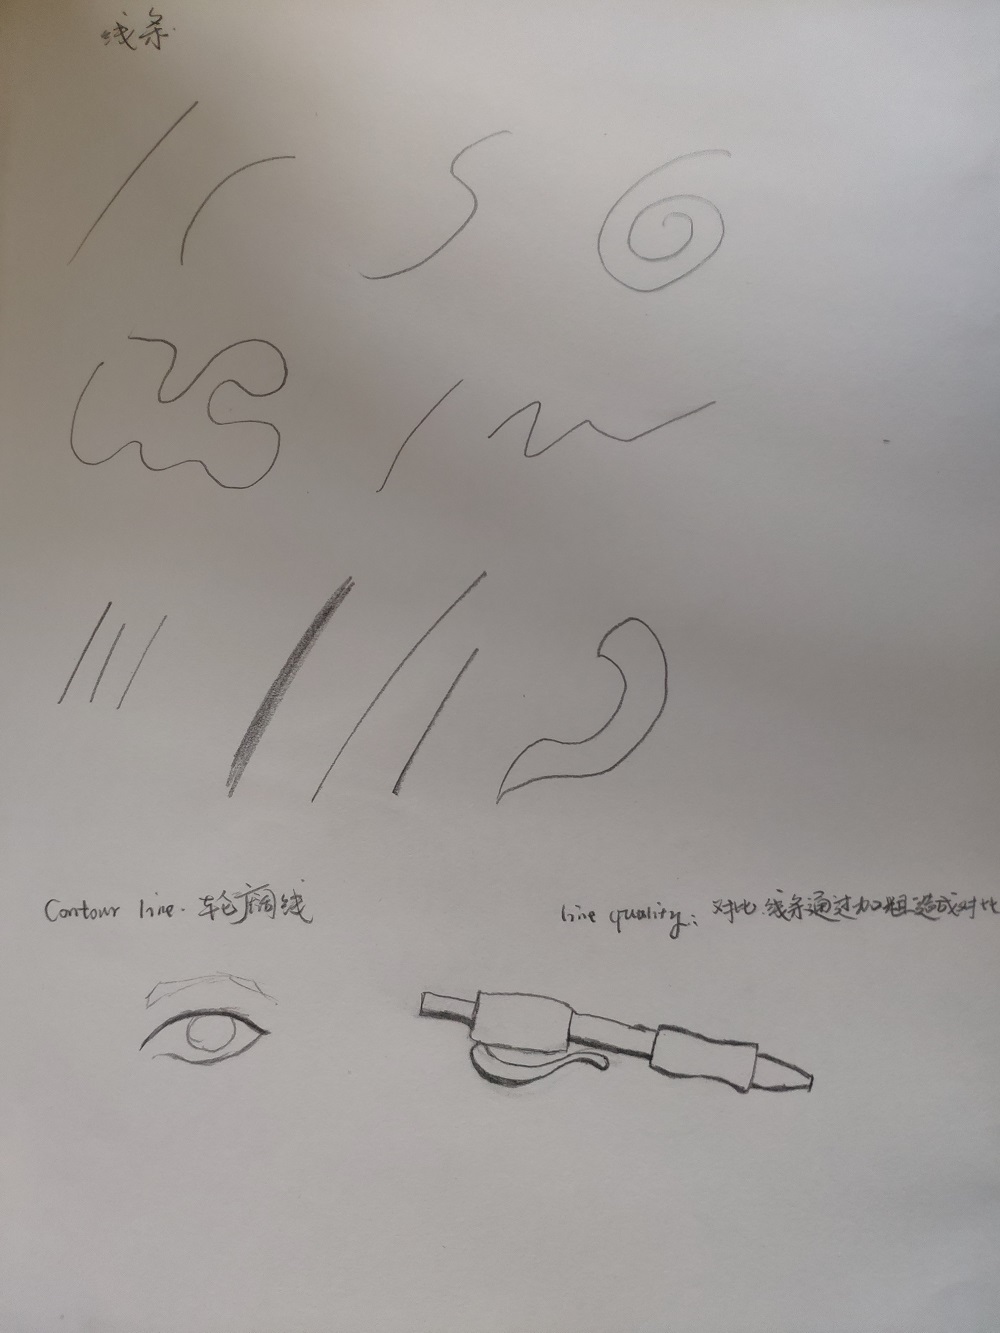 线条
Contour line. 轮廓线
line quality: 对比.线条通过加粗造成对比